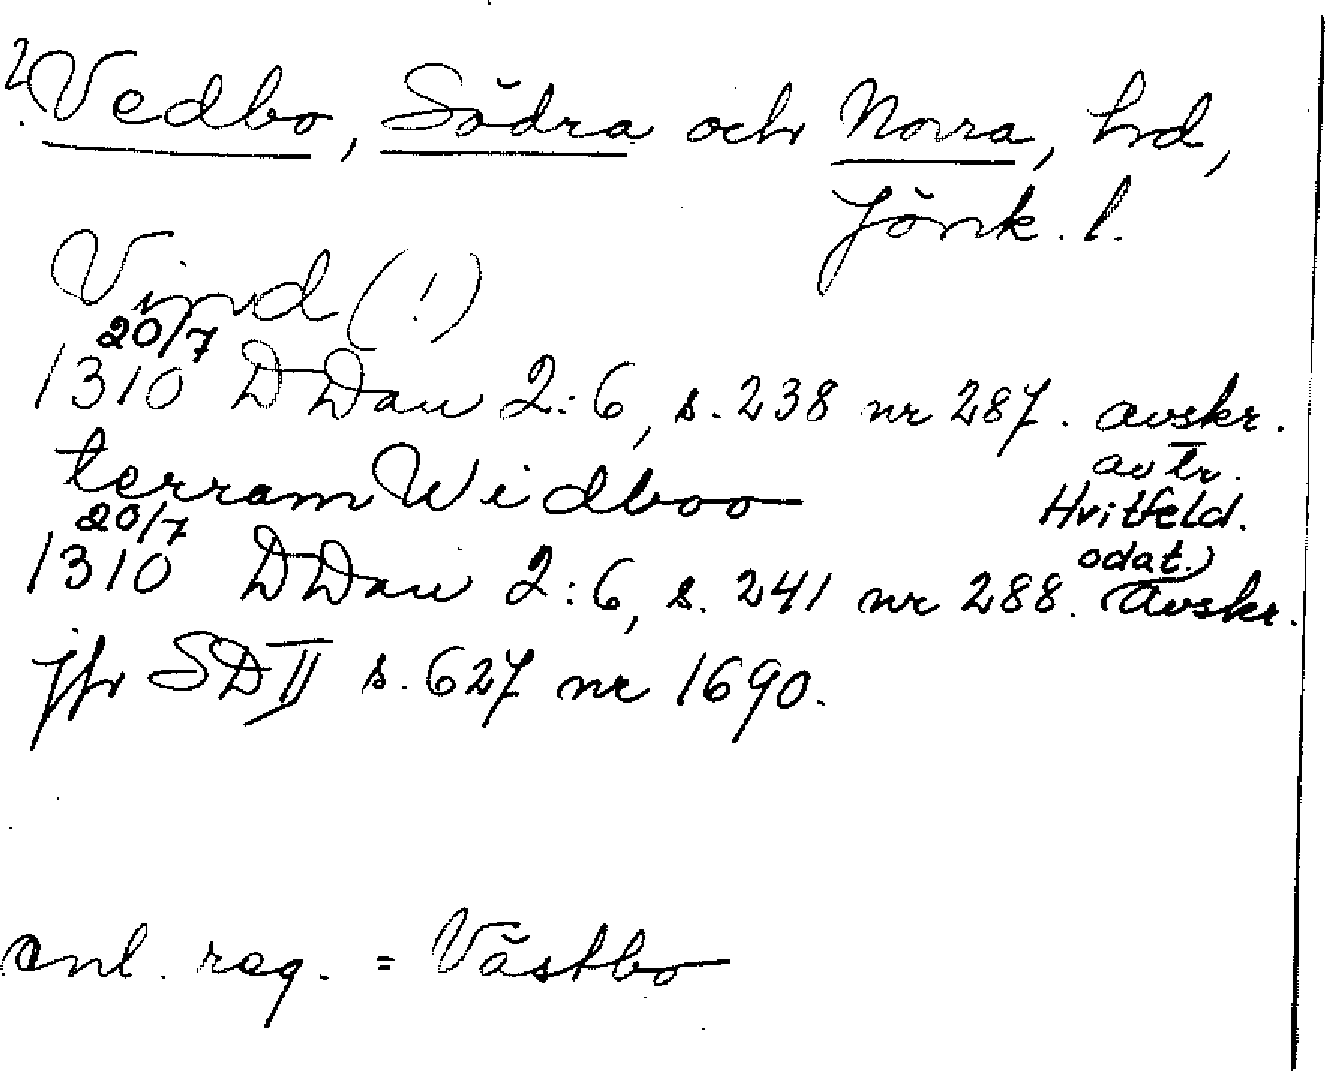 ?Vedbo, Södra och Norra, hd,
Jönk. l.
Vind (!)
20/7
1310 DDan 2:6, s. 238 nr 287. avskr.
av tr.
terram Widboo
Hvitfeld.
20/7
odat.)
1310 DDan 2:6, s. 241 nr 288. Avskr.
jfr SD II s. 627 nr 1690.
enl. reg. = Västbo